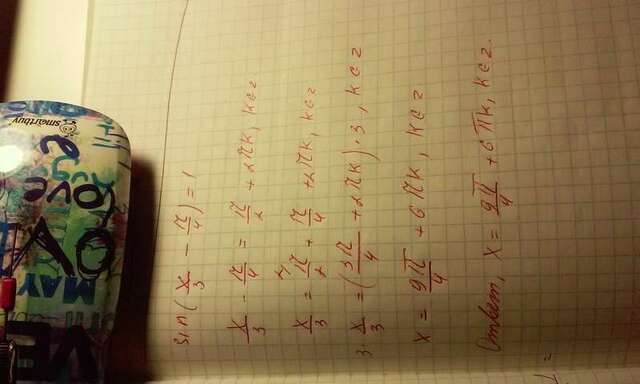 sin(x/3 - π/4) = 1
x/3 - π/4 = π/2 + 2πk, k∈z
x/3 = π/2 + π/4 + 2πk, k∈z
3 x/3 = (3π/4 + 2πk)·3, k∈z
x = 9π/4 + 6πk, k∈z
Ответ, x = 9π/4 + 6πk, k∈z.
smartbuy
LOVE
MAY